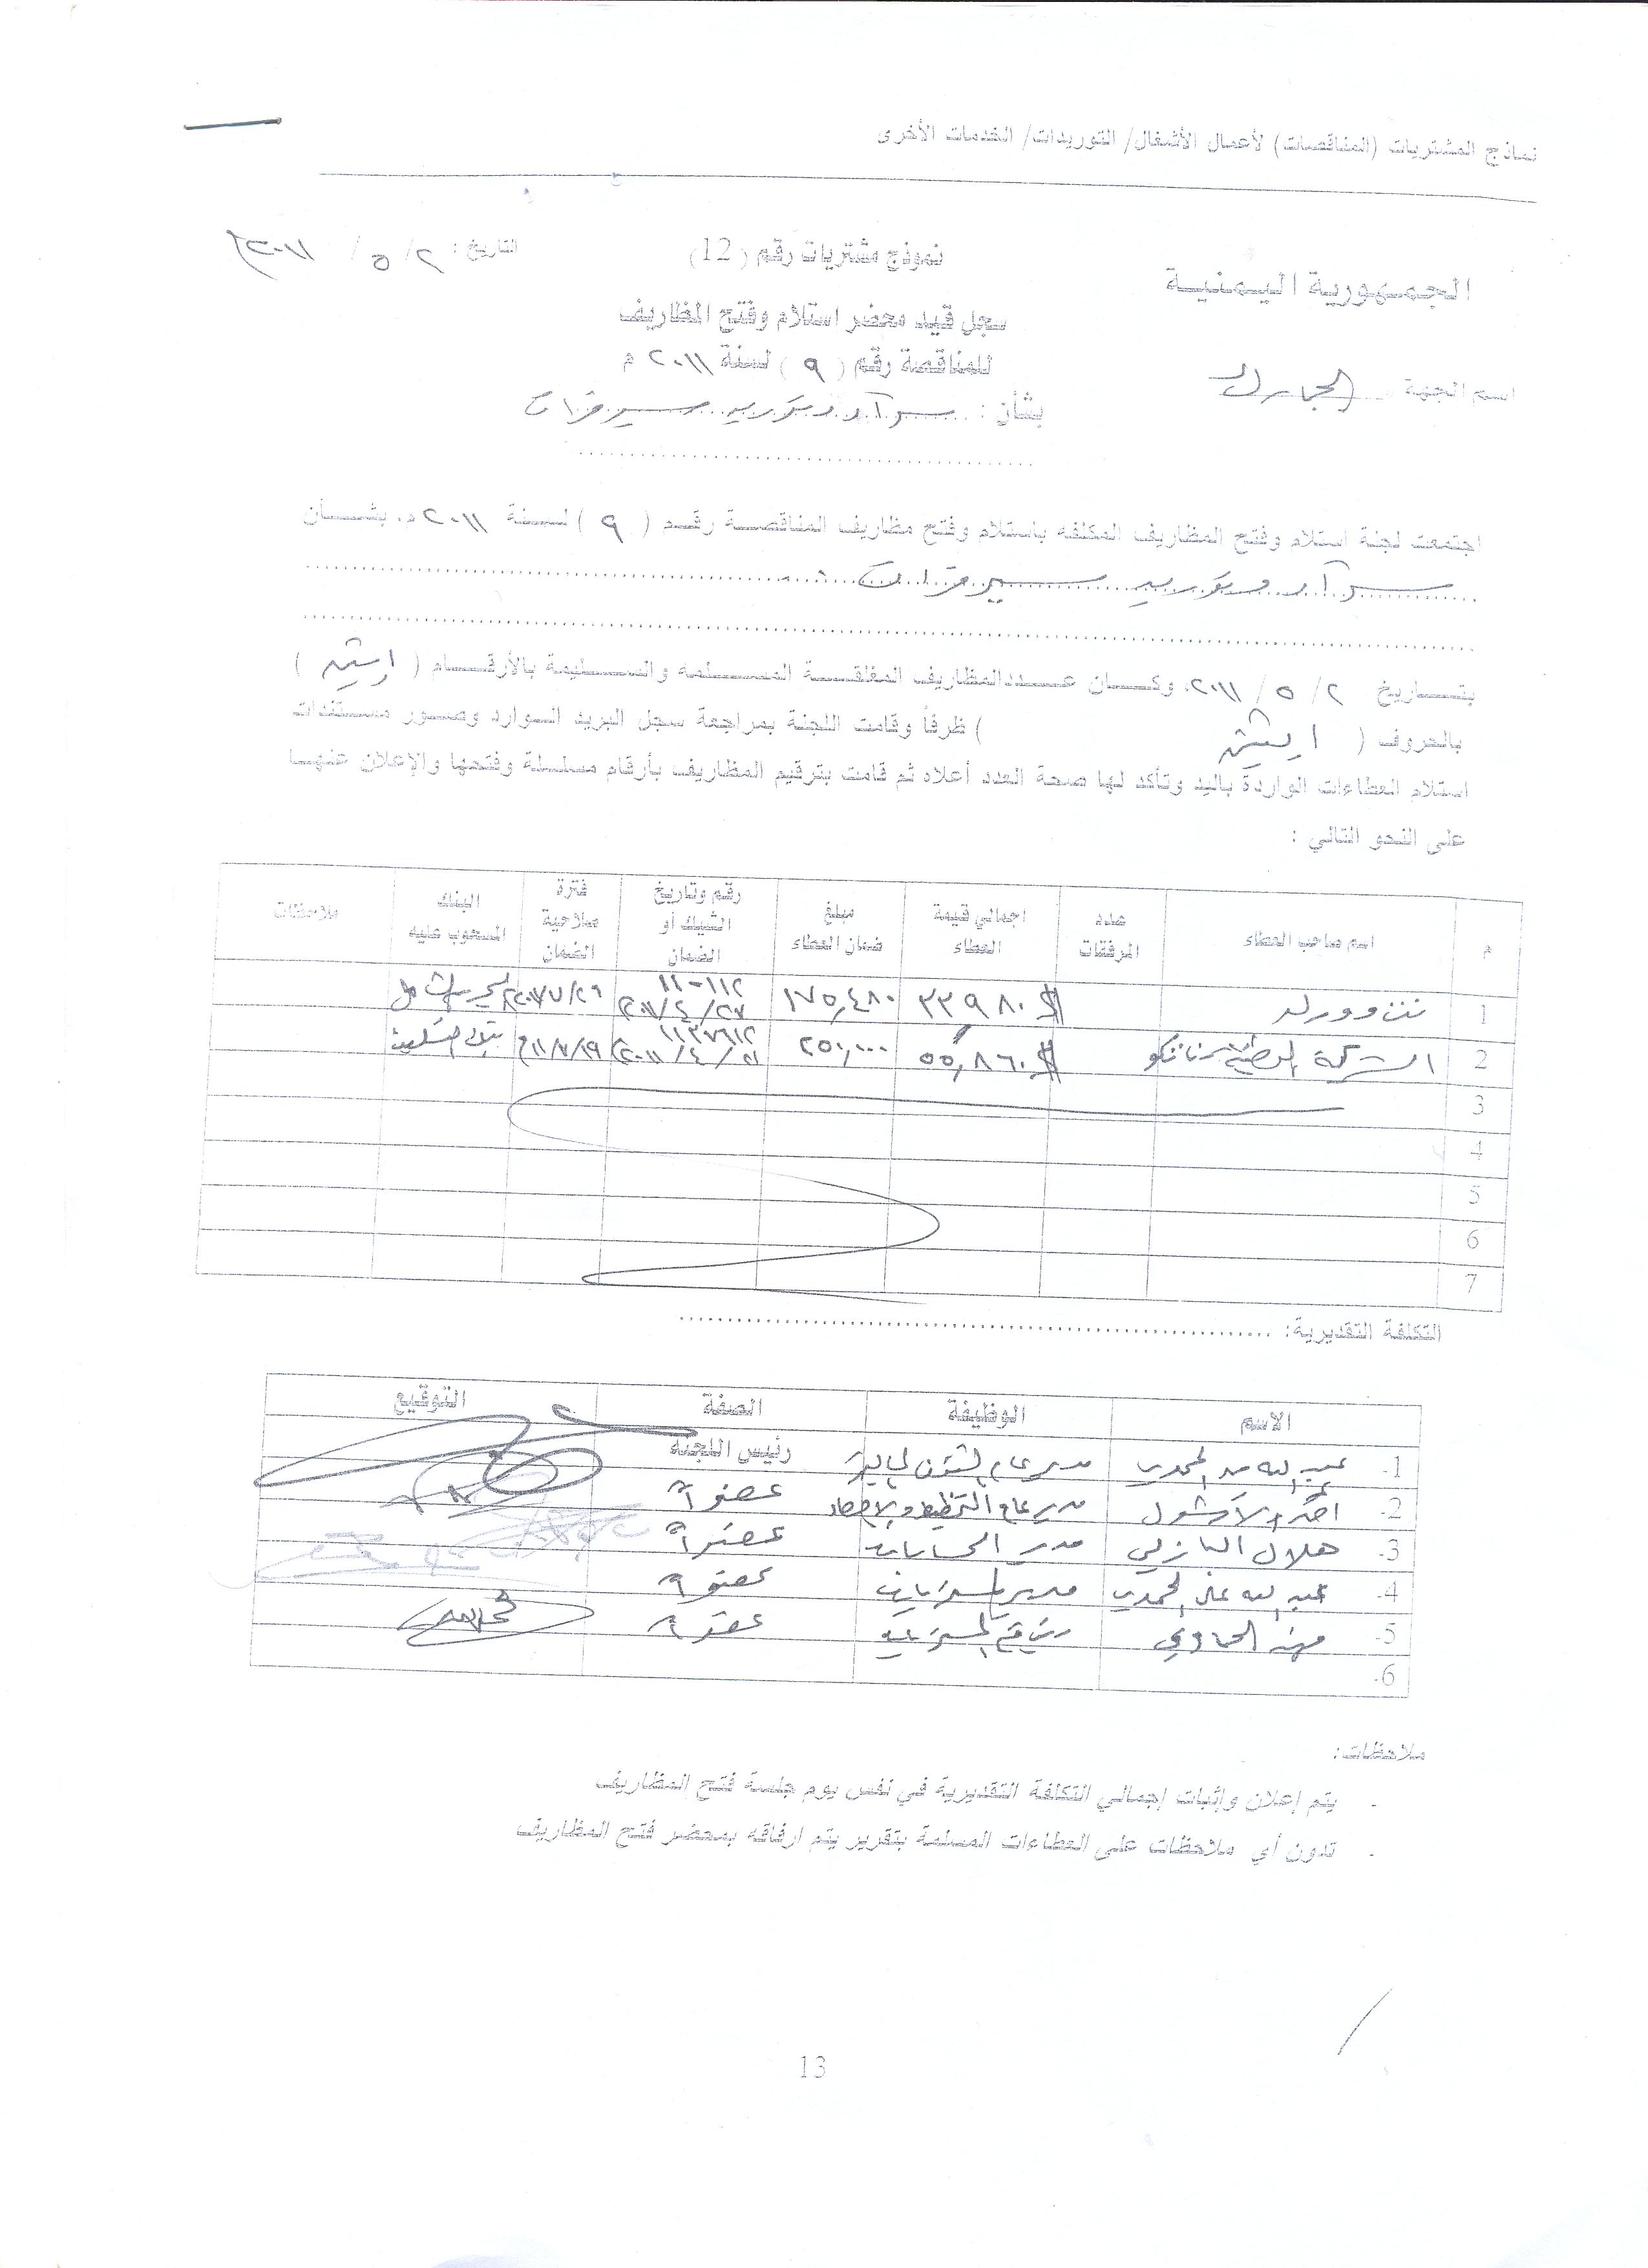 نماذج المشتريات (المناقصات) لأعمال الأشغال/ التوريدات/ الخدمات الأخرى
الجمهورية اليمنية
نموذج مشتريات رقم (12)
التاريخ : ٢/ ٥ / ٢٠١١م
سجل قيد محضر استلام وفتح المظاريف
للمناقصة رقم ( ٩ ) لسنة ٢٠١١ م
اسم الجهة : الجمارك
بشأن : شراء وتوريد سيرفرات
اجتمعت لجنة استلام وفتح المظاريف المكلفه باستلام وفتح مظاريف المناقصة رقم ( ٩ ) لسنة ٢٠١١ م. بشأن
شراء وتوريد سيرفرات
بتاريخ ٢/ ٥ / ٢٠١١، وكان عدد المظاريف المغلقة المسلمه والسليمة بالأرقام ( اثنين )
بالحروف ( اثنين ) ظرفاً وقامت اللجنة بمراجعة سجل البريد الوارد وصور مستندات
استلام العطاءات الواردة باليد وتأكد لها صحة العدد أعلاه ثم قامت بترقيم المظاريف بأرقام مسلسلة وفتحها والإعلان عنها
على النحو التالي :
م اسم صاحب العطاء عدد المرفقات اجمالي قيمة العطاء مبلغ ضمان العطاء رقم وتاريخ الشيك أو الضمان فترة صلاحية الضمان البنك المسحوب عليه ملاحظات
1 نت وورلد $٣٣٩٨٠ ١٧٥,٤٨٠ ١١٠١١٢ ٢٠١١/٤/٢٧
2 الشركة الوطنية $٥٥,٨٦٠ ٢٥٠,٠٠٠ ١١٣٧٦١٢
3
4
5
6
7
التكلفة التقديرية:
الاسم الوظيفة الصفة التوقيع
1. عبدالله المحمدي مدير عام الشئون المالية رئيس اللجنة
2. احمد مدير عام التخطيط والاحصاء عضوآ
3. هلال البازلي مدير الحسابات عضوآ
4. عبدالله علي المحمدي مدير المشتريات عضوآ
5. الحماوي عضوآ
6.
ملاحظات:
- يتم إعلان وإثبات إجمالي التكلفة التقديرية في نفس يوم جلسة فتح المظاريف
- تدون أي ملاحظات على العطاءات المسلمة بتقرير يتم ارفاقه بمحضر فتح المظاريف
13